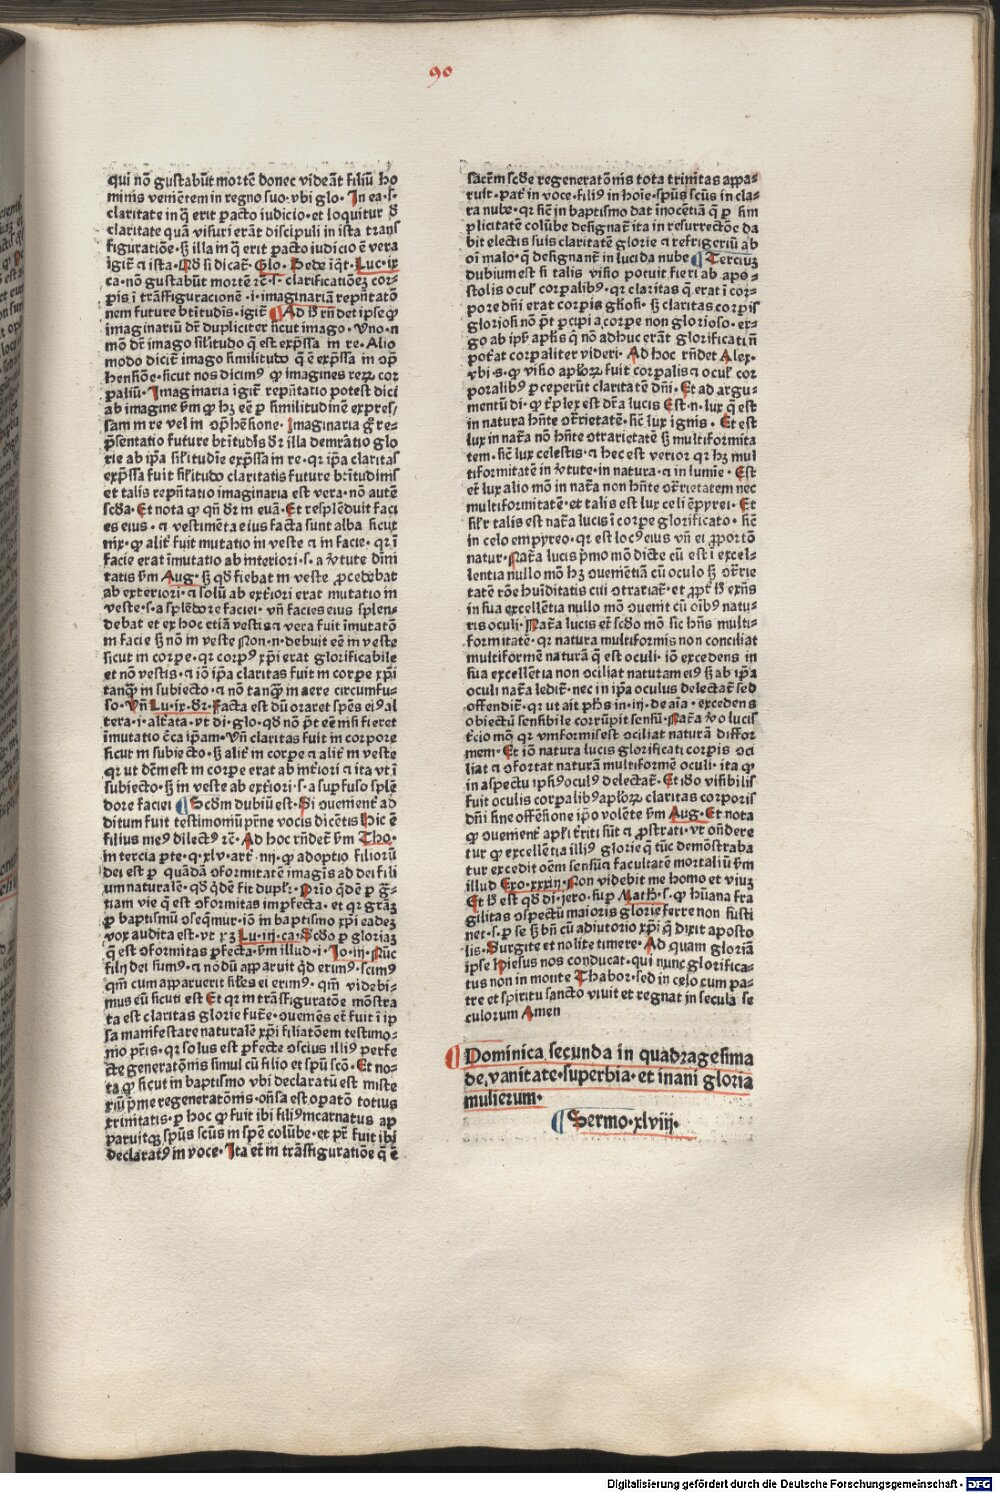 90
qui nō gustabūt mortē donec videāt filiū ho
minis veniētem in regno suo· vbi glo· In ea·s·
claritate in q̄ erit ꝑacto iudicio· et loquitur ð
claritate quā visuri erāt discipuli in ista trans
figuratiōe· sꝫ illa in q̄ erit ꝑacto iudicio ē vera
igit̄ ⁊ ista· Qð si dicat̄· Glo· Bede īq̄t· Luc·ix
ca· nō gustabūt mortē ⁊c̄·s· clarificatiōeꝫ cor-
ꝑis ī trāsfiguracionē·i· imaginariā rep̄ntatō
nem future bt̄itudīs· igit̄ ¶ Ad ħ rn̄det ipse ꝙ
imaginariū dr̄ dupliciter sicut imago· Vno·n
mō dr̄ imago sīlitudo q̄ est exp̄ssa in re· Alio
modo dicit̄ imago similitudo q̄ ē exp̄ssa in op̄
hensiōe· sicut nos dicimꝰ ꝙ imagines reꝝ cor
paliū· Imaginaria igit̄ rep̄ntatio potest dici
ab imagine ẜm ꝙ hꝫ eē ꝑ similitudinē expres/
sam in re vel in op̄hensione· Imaginaria g̊ re-
p̄sentatio future bt̄itudīs dr̄ illa demr̄atio glo
rie ab ip̄a sīlitudīe exp̄ssa in re· qr ip̄a claritas
exp̄ssa fuit similitudo claritatis future bt̄itudinis
et talis rep̄ntatio imaginaria est vera· nō autē
scða· Et nota ꝙ qn̄ dr̄ in euā· Et resplēduit faci
es eius· ⁊ vestimēta eius facta sunt alba sicut
nix· ꝙ alit̄ fuit mutatio in veste ⁊ in facie· qr ī
facie erat īmutatio ab interiori·s· a v̄tute diuī
tatis ẜm Aug· sꝫ qð fiebat in veste ꝓcedebat
ab exteriori· ⁊ solū ab ext̄iori erat mutatio in
veste·s· a splēdore faciei· vn̄ facies eius splen-
debat et ex hoc etiā vestis ⁊ vera fuit īmutatō
in facie sꝫ nō in veste Non·n· debuit eē in veste
sicut in corꝑe· qr corpꝰ xp̄i erat glorificabile
et nō vestis· ⁊ iō ip̄a claritas fuit in corꝑe xp̄i
tanꝗ̄ in subiecto· ⁊ nō tanꝗ̄ in aere circumfu-
so· Vn̄ Lu·ix·dr̄· Facta est dū oraret spēs eiꝰ al
tera·i· alt̄ata· vt di·glo· qð nō p̄t eē nisi fieret
īmutatio c̄ca ip̄am· Vn̄ claritas fuit in corpore
sicut in subiecto· sꝫ alit̄ in corꝑe ⁊ alit̄ in veste
qr ut dc̄m est in corꝑe erat ab int̄iori ⁊ ita vt ī
subiecto· sꝫ in veste ab ext̄iori·s· a suꝑfuso splē
dore faciei ¶ Scðm dubiū est· Si ɔuenient̄ ad
ditum fuit testimoniū pr̄ne vocis dicētis Hic ē
filius meꝰ dilectꝰ ⁊c̄· Ad hoc rn̄det̄ ẜm Tho·
in tercia ꝑte·q·xlv·art̄·iiij· ꝙ adoptio filiorū
dei est ꝑ quādā ɔformitatē imagīs ad dei fili
um naturalē· qð qdē fit dupl̄r· Prīo qdē ꝑ g̊-
tiam vie q̄ est ɔformitas imꝑfecta· et qr gr̄aꝫ
ꝑ baptismū ɔseq̄mur· iō in baptismo xp̄i eadeꝫ
vox audita est· vt ⁊ꝫ Lu·iij·ca· Scðo ꝑ gloriaꝫ
q̄ est ɔformitas ꝑfecta· ẜm illud·i·Io·iij·Nūc
filij dei sumꝰ· ⁊ nōdū apparuit qd erimꝰ· scimꝰ
qm̄ cum apparuerit sil̄es ei erimꝰ· qm̄ videbi-
mus eū sicuti est Et qr in trāsfiguratōe mōstra
ta est claritas glorie fut̄e· ɔueniēs et̄ fuit ī ip
sa manifestare naturalē xp̄i filiatōem testimo-
nio pr̄is· qr solus est ꝑfecte ɔscius illiꝰ perfe
cte generatōnis simul cū filio et spū scō· Et no-
ta ꝙ sicut in baptismo vbi declaratū est miste
riū p̄me regeneratōnis· oñsa est oꝑatō totius
trinitatis· ꝑ hoc ꝙ fuit ibi filiꝰ incarnatus ap
paruitqꝫ spūs scūs in spē colūbe· et pr̄ fuit ibi
declaratꝰ in voce· Ita et̄ in trāsfiguratiōe q̄ ē
sacr̄m scðe regeneratōnis tota trinitas appa-
ruit· pat̄ in voce· filiꝰ in hoīe· spūs scūs in cla-
ra nube· qr sic̄ in baptismo dat inocētiā q̄ ꝑ sim
plicitatē colūbe designat̄ ita in resurrectōe da
bit electis suis claritatē glorie ⁊ refrigeriū ab
oī malo· q̄ designant̄ in lucida nube ¶ Terciuꝫ
dubium est si talis visio potuit fieri ab apo-
stolis ocul̄ corꝑalibꝰ· qr claritas q̄ erat ī cor-
pore dnī erat corꝑis gl̄iosi· sꝫ claritas corꝑis
gloriosi nō p̄t ꝑcipi a corꝑe non glorioso· er-
go ab ip̄is apl̄is q̄ nō adhuc erāt glorificati n̄
pot̄at corꝑaliter videri· Ad hoc rn̄det Alex·
vbi·s· ꝙ visio apl̄oꝝ fuit corꝑalis ⁊ ocul̄ cor
poralibꝰ ꝑceperūt claritatē dnī· Et ad argu-
mentū di· ꝙ t̄plex est dr̄a lucis Est·n· lux q̄ est
in natura hn̄te ɔr̄rietatē· sic̄ lux ignis· Et est
lux in nat̄a nō hn̄te ɔtrarietatē sꝫ multiformita
tem· sic̄ lux celestis· ⁊ hec est verior qr hꝫ mul
tiformitatē in v̄tute· in natura· ⁊ in lumīe· Est
et̄ lux alio mō in nat̄a non hn̄te ɔr̄rietatem nec
multiformitatē· et talis est lux celi ēpyrei· Et
sil̄r talis est nat̄a lucis ī corꝑe glorificato· sic̄
in celo empyreo· qr est locꝰ eius vn̄ ei ꝓportō
natur· Nat̄a lucis p̄mo mō dicte cū est ī excel-
lentia nullo mō hꝫ ɔuenientiā cū oculo sꝫ ɔr̄rie
tatē rōe hūiditatis cui ɔtrariat̄· et ꝓpt̄ ħ exn̄s
in sua excellētia nullo mō ɔuenit cū oībꝰ natu-
ris oculi· Nat̄a lucis et̄ scðo mō sic hn̄s multi-
formitatē· qr natura multiformis non conciliat
multiformē naturā q̄ est oculi· iō excedens in
sua excellētia non ɔciliat naturam eiꝰ sꝫ ab ip̄a
oculi nat̄a ledit̄· nec in ip̄a oculus delectat̄ sed
offendit̄· qr ut ait ph̄s in·iij·de aīa· excedens
obiectū sensibile corrūpit sensū· Nat̄a v̄o lucis
t̄cio mō qr vniformis est ɔciliat naturā diffor
mem· Et iō natura lucis glorificati corꝑis ɔci
liat ⁊ ɔfortat naturā multiformē oculi· ita ꝙ
in aspectu ipsiꝰ oculꝰ delectat̄· Et iðo visibilis
fuit oculis corꝑalibꝰ apl̄oꝝ claritas corporis
dnī sine offēsione ip̄o volēte ẜm Aug· Et nota
ꝙ ɔuenient̄ apl̄i t̄riti sūt ⁊ ꝓstrati· vt oñdere
tur ꝙ excellētia illiꝰ glorie q̄ tūc demōstraba
tur excedit oēm sensū ⁊ facultatē mortaliū ẜm
illud Exo·xxxiij· Non videbit me homo et viuꝫ
Et ħ est qð di·Jero·suꝑ Math·s· ꝙ hūana fra
gilitas ɔspectū maioris glorie ferre non susti
net·s· ꝑ se sꝫ bn̄ cū adiutorio xp̄i q̄ dixit aposto
lis· Surgite et nolite timere· Ad quam gloriā
ipse Ihesus nos conducat· qui nunc glorifica-
tus non in monte Thabor· sed in celo cum pa-
tre et spiritu sancto viuit et regnat in secula se
culorum Amen
¶ Dominica secunda in quadragesima
de vanitate· superbia· et inani gloria
mulierum·
¶ Sermo·xlviij·
Digitalisierung gefördert durch die Deutsche Forschungsgemeinschaft · DFG